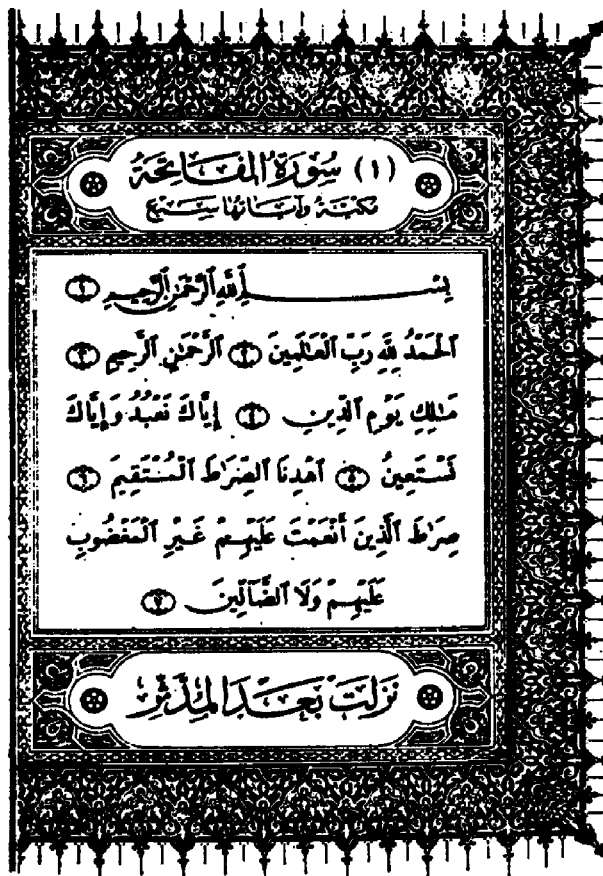 (١) سُورَةُ الْفَاتِحَةِ
مَكيَّة وَآيَاتهَا سَبْع
بِسْمِ ٱللَّهِ ٱلرَّحْمَٰنِ ٱلرَّحِيمِ ١
ٱلْحَمْدُ لِلَّهِ رَبِّ ٱلْعَٰلَمِينَ ٢ ٱلرَّحْمَٰنِ ٱلرَّحِيمِ ٣
مَٰلِكِ يَوْمِ ٱلدِّينِ ٤ إِيَّاكَ نَعْبُدُ وَإِيَّاكَ
نَسْتَعِينُ ٥ ٱهْدِنَا ٱلصِّرَٰطَ ٱلْمُسْتَقِيمَ ٦
صِرَٰطَ ٱلَّذِينَ أَنْعَمْتَ عَلَيْهِمْ غَيْرِ ٱلْمَغْضُوبِ
عَلَيْهِمْ وَلَا ٱلضَّآلِّينَ ٧
نَزَلَتْ بَعْدَ الْمُدَّثِّرِ